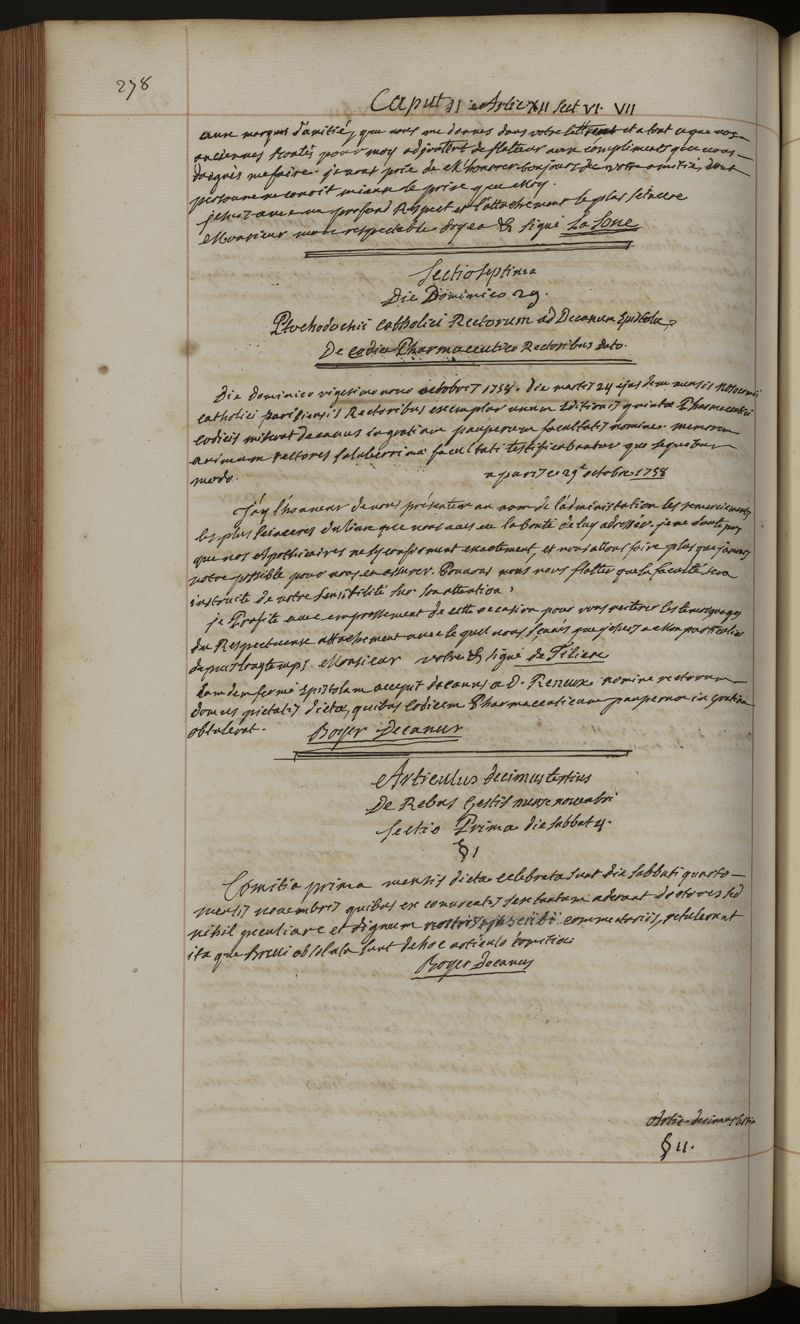 278
Caput II Artic XII Sect VI. VII
aux marques d'amitié, que vous me donnes dans votre lettre et a tout ce que vos
anciennes bontés pour moy adjoutent de flatteur aux complimens que vous
daignés me faire. je vous prie de M'honorer toujours de votre amitié, dont
personne ne conoit mieux le prix que Moy.
je suis avec un profond Respect et l'attachement le plus sincere
Monsieur mon respectable doyen & signé La Sone
Sectio Septima
Die Dominico 29.
Ptochodochii Catholici Rectorum ad Decanum Epistola,
De Codice Pharmaceutico Rectoribus Dato.
Die dominico vigesimo nono octobris 1758. die martis 24 ejusdem mensis Nosocomii
Catholici parisiensis Rectoribus exemplar unum Editionis quintae Pharmaceutici
Codicis miserat decanus in gratiam pauperum facultatis nomine. memorem
animum rectores saluberrimae facultati testificabantur quo sequitur
modo.
a paris ce 29e octobre 1758
J'ay l'honneur de vous présenter au nom de l'administration les remerciements
les plus sinceres du livre que vous aves eu la bonté de luy adresser. je ne doute pas
que nos apothicaires ne s'y conforment exactement et nous allons faire plus que jamais
notre possible pour nous en assurer. Pouvons nous nous flatter que la faculté sera
instruite de notre sensibilité sur son attention,
je Profite avec empressement de cette occasion pour vous reiterer les temoignages
du Respectueux attachement avec le quel vous scavés que je suis a Mon particulier
depuis longtemps Monsieur votre & signé de Tiliere
Eamdem fermè Epistolam accepit decanus a D. Reneux nomine rectorum
domus pietatis dictae, quibus Codicem Pharmaceuticum pauperum in gratiam
obtulerat. Boyer Decanus
Articulus decimus tertius
De Rebus Gestis mense novembri
Sectio Prima die sabbati 4.
§ I
Comitia prima mensis dicta celebrata sunt die sabbati quarto
mensis novembris quibus ex convocatis sex tantum aderant doctores sed
nihil peculiare et dignum nostris commentariis, retulerunt
itaque brevi absoluta sunt de hoc articulo comitia
Boyer decanus
Artic. decimus tertius
§ II.